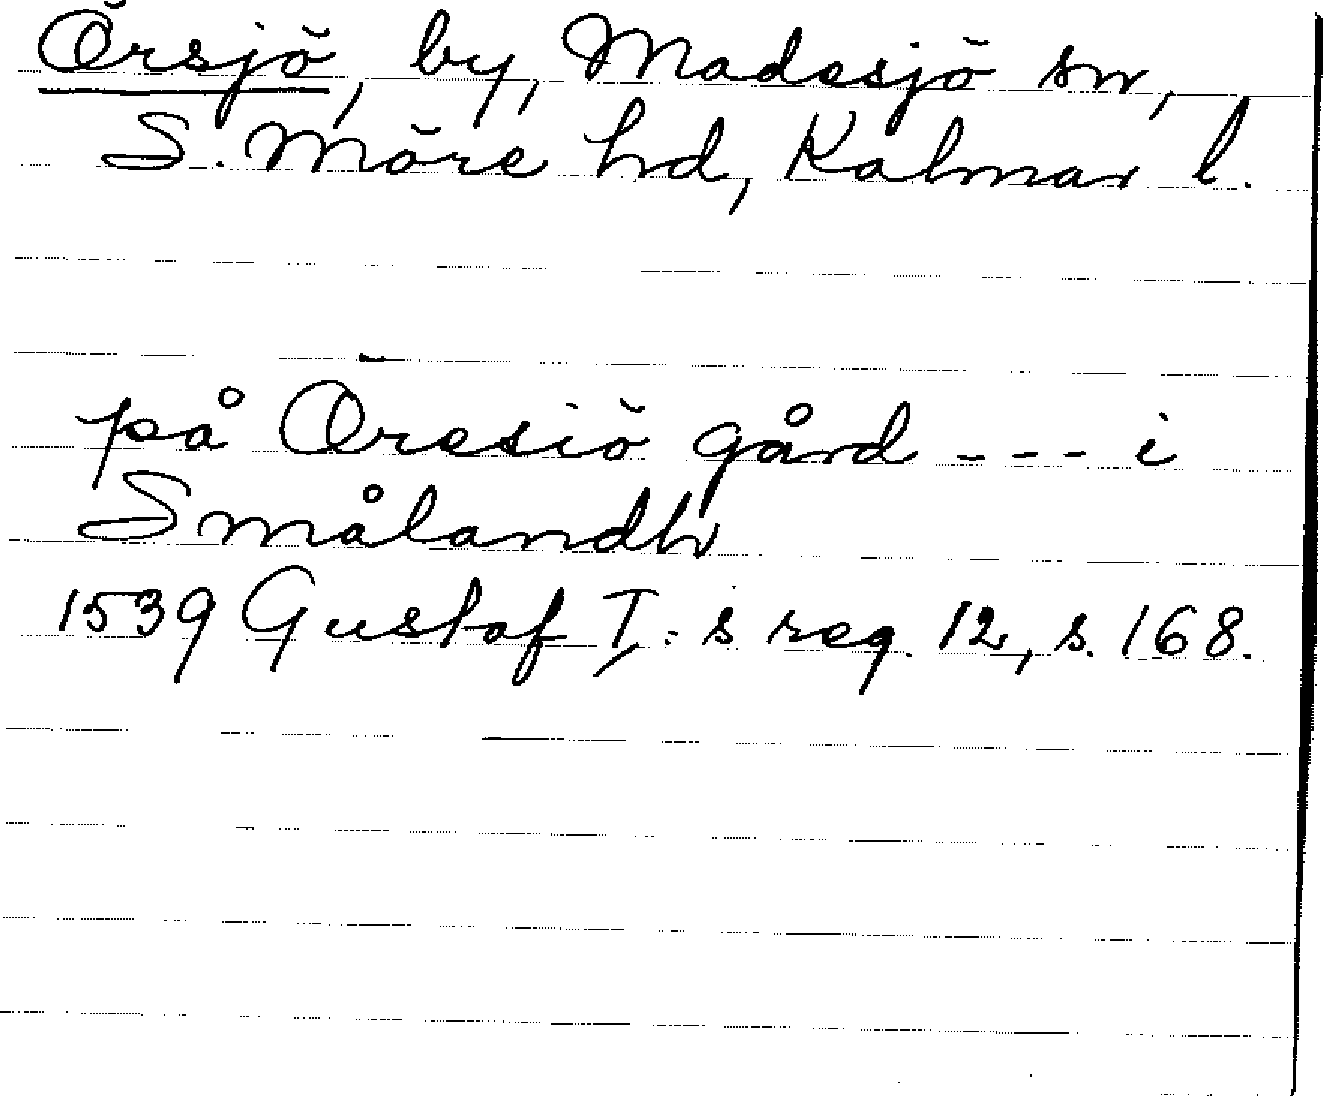 Örsjö, by, Madesjö sn,
S. Möre hd, Kalmar l.
på Öresiö gård --- i
Smålandh
1539 Gustaf I:s reg. 12, s. 168.